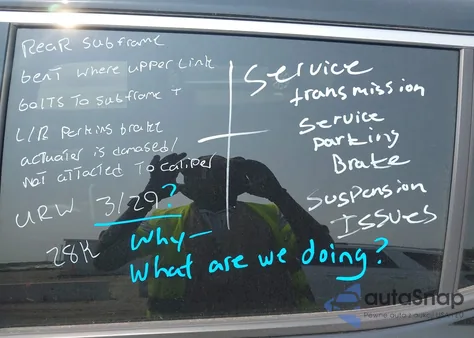 Rear Subframe
bent where upper Link
bolts To Subframe +
L/R Perking brake
actuater is damased/
not attacted To Caliper
URW 3/29?
28K
Service
transmission
Service
parking
Brake
Suspension
Issues
Why-
What are we doing?
autaSnap